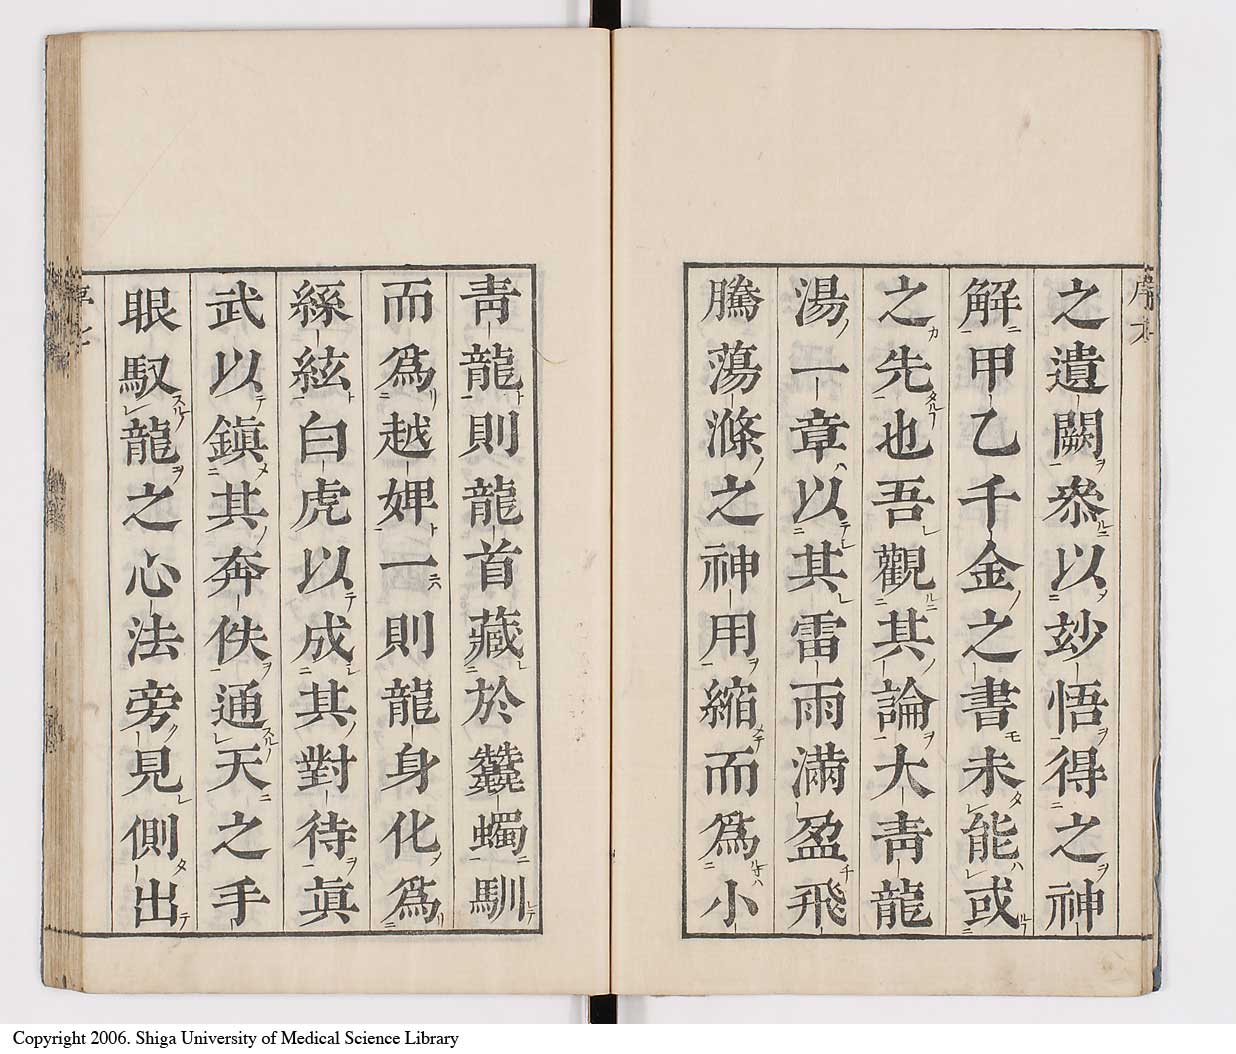 之遺闕叅以玅悟得之神
解甲乙千金之書未能或
之先也吾觀其論大青龍
湯一章以其雷雨滿盈飛
騰蕩滌之神用縮而為小
青龍則龍首藏於蠿蠋馴
而為越婢一則龍身化為
絲絃白虎以成其對待眞
武以鎮其奔佚通天之手
眼馭龍之心法旁見側出
Copyright 2006. Shiga University of Medical Science Library